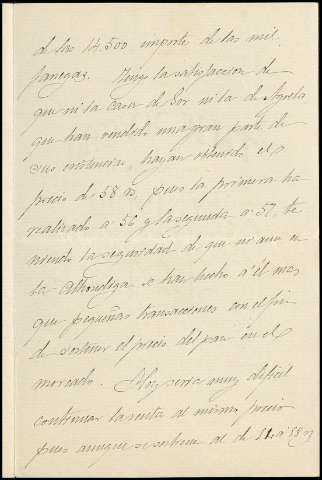 de las 14.500 importe de las mil
fanegas. Tengo la satisfaccion de
que ni la Casa de Sor ni la de
que han vendido una gran parte de
sus existencias, hayan obtenido el
precio de 58 rs, pues la primera ha
realizado a 56 y la segunda a 57, te
niendo la seguridad de que ni aun en
la Alhondiga se han hecho a él mas
que pequeñas transacciones con el fin
de sostener el precio del pan en el
mercado. Hoy seria muy dificil
continuar la venta al mismo precio
pues aunque se sostiene el de 56 a 58 rs